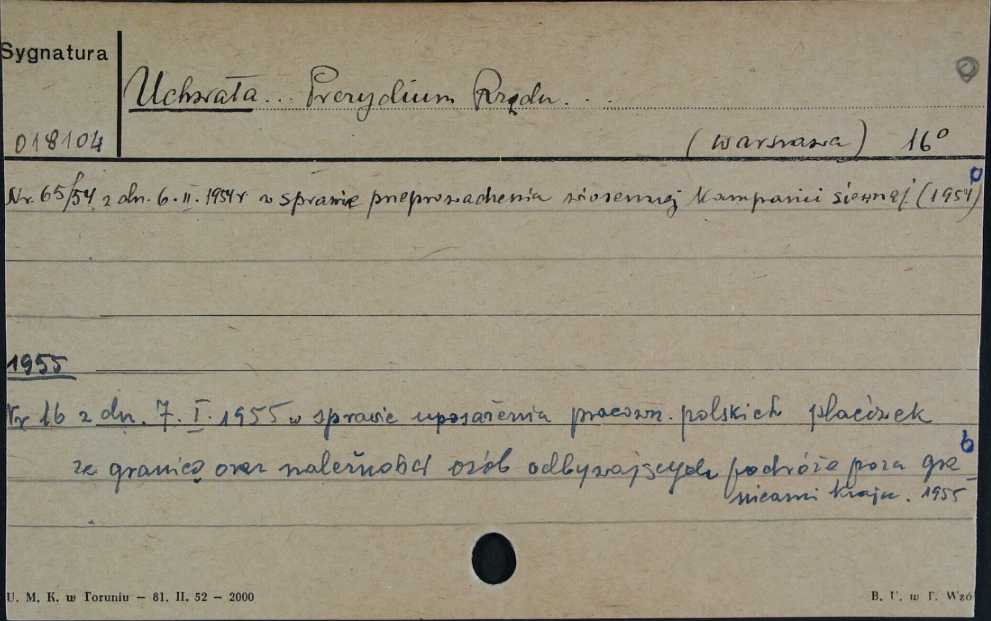 Sygnatura
Uchwała... Prezydium Rządu...
018104
(Warszawa) 16°
Nr. 65/54 z dn. 6.II.1954r w sprawie przeprowadzenia wiosennej kampanii siewnej. (1954)
1955
Nr 16 z dn. 7.I.1955 w sprawie uposażenia pracown. polskich placówek
za granicą oraz należności osób odbywających podróże poza gra-
nicami kraju. 1955
b
U. M. K. w Toruniu – 81. II. 52 – 2000
B. U. w T. Wzó